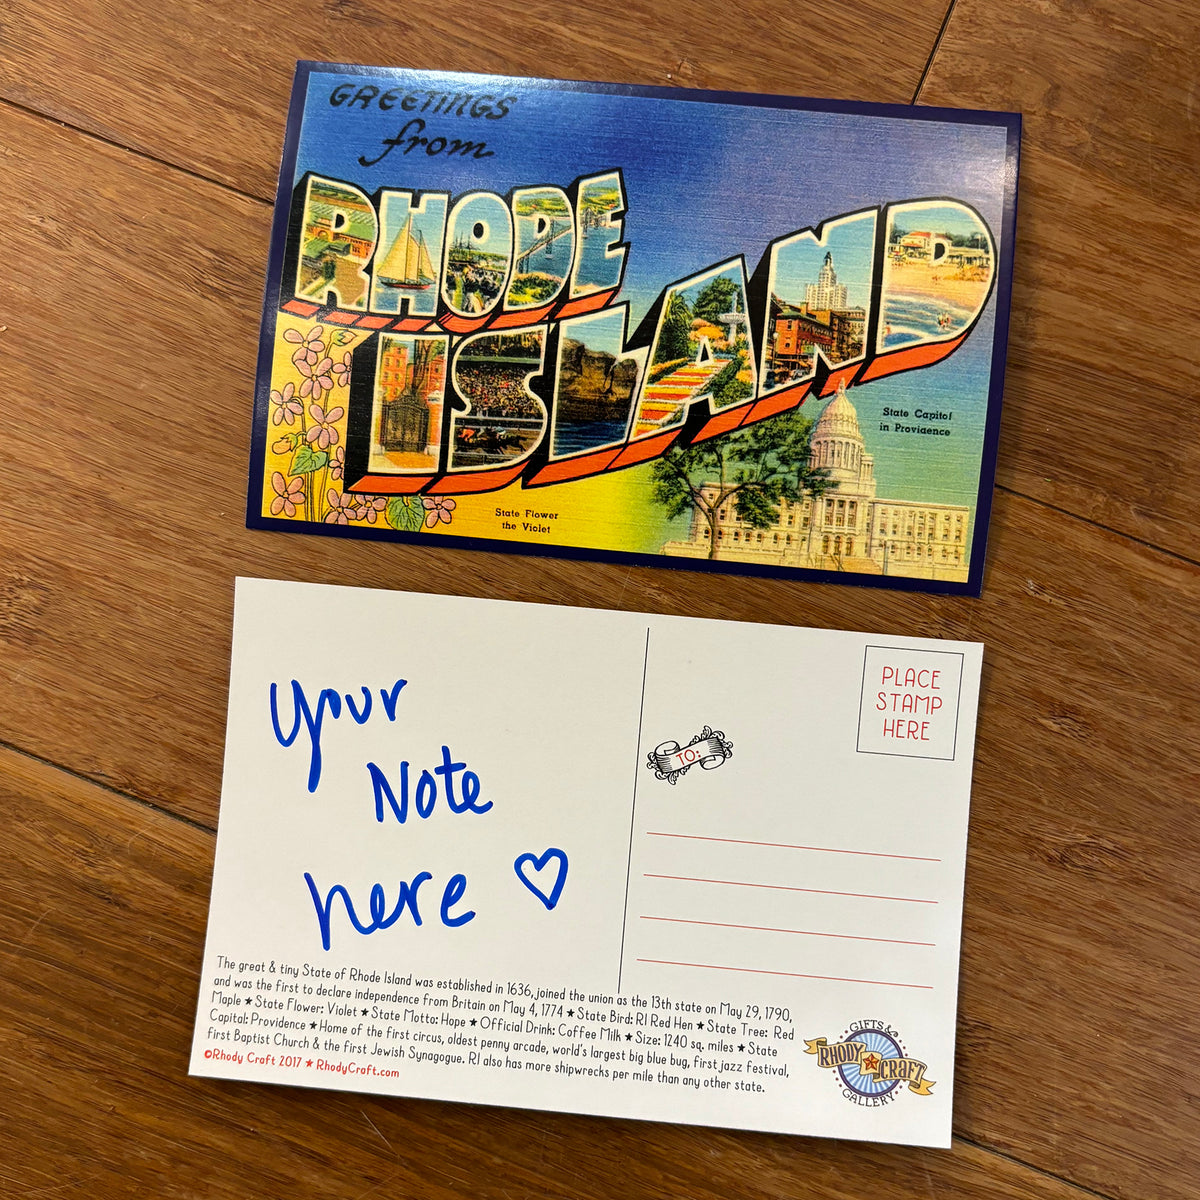 GREETINGS
from
RHODE
ISLAND
State Capitol
in Providence
State Flower
the Violet
your
Note
here
PLACE
STAMP
HERE
TO:
The great & tiny State of Rhode Island was established in 1636, joined the union as the 13th state on May 29, 1790,
and was the first to declare independence from Britain on May 4, 1774 ★ State Bird: RI Red Hen ★ State Tree: Red
Maple ★ State Flower: Violet ★ State Motto: Hope ★ Official Drink: Coffee Milk ★ Size: 1240 sq. miles ★ State
Capital: Providence ★ Home of the first circus, oldest penny arcade, world's largest big blue bug, first jazz festival,
first Baptist Church & the first Jewish Synagogue. RI also has more shipwrecks per mile than any other state.
©Rhody Craft 2017 ★ RhodyCraft.com
GIFTS &
RHODY ★ CRAFT
GALLERY